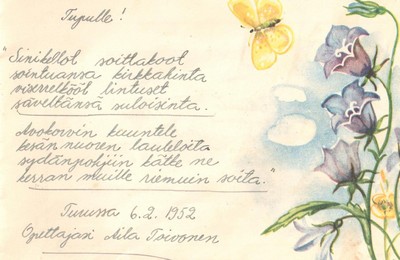 Tupulle!
"Sinikellot soittakoot
sointuansa kirkkahinta
viserrelkööt lintuset
säveltänsä suloisinta.
Avokorvin kuuntele
kesän nuoren lauleloita
sydänpohjiin kätke ne
kerran muille riemuin soita."
Turussa 6.2. 1952
Opettajasi Aila Toivonen